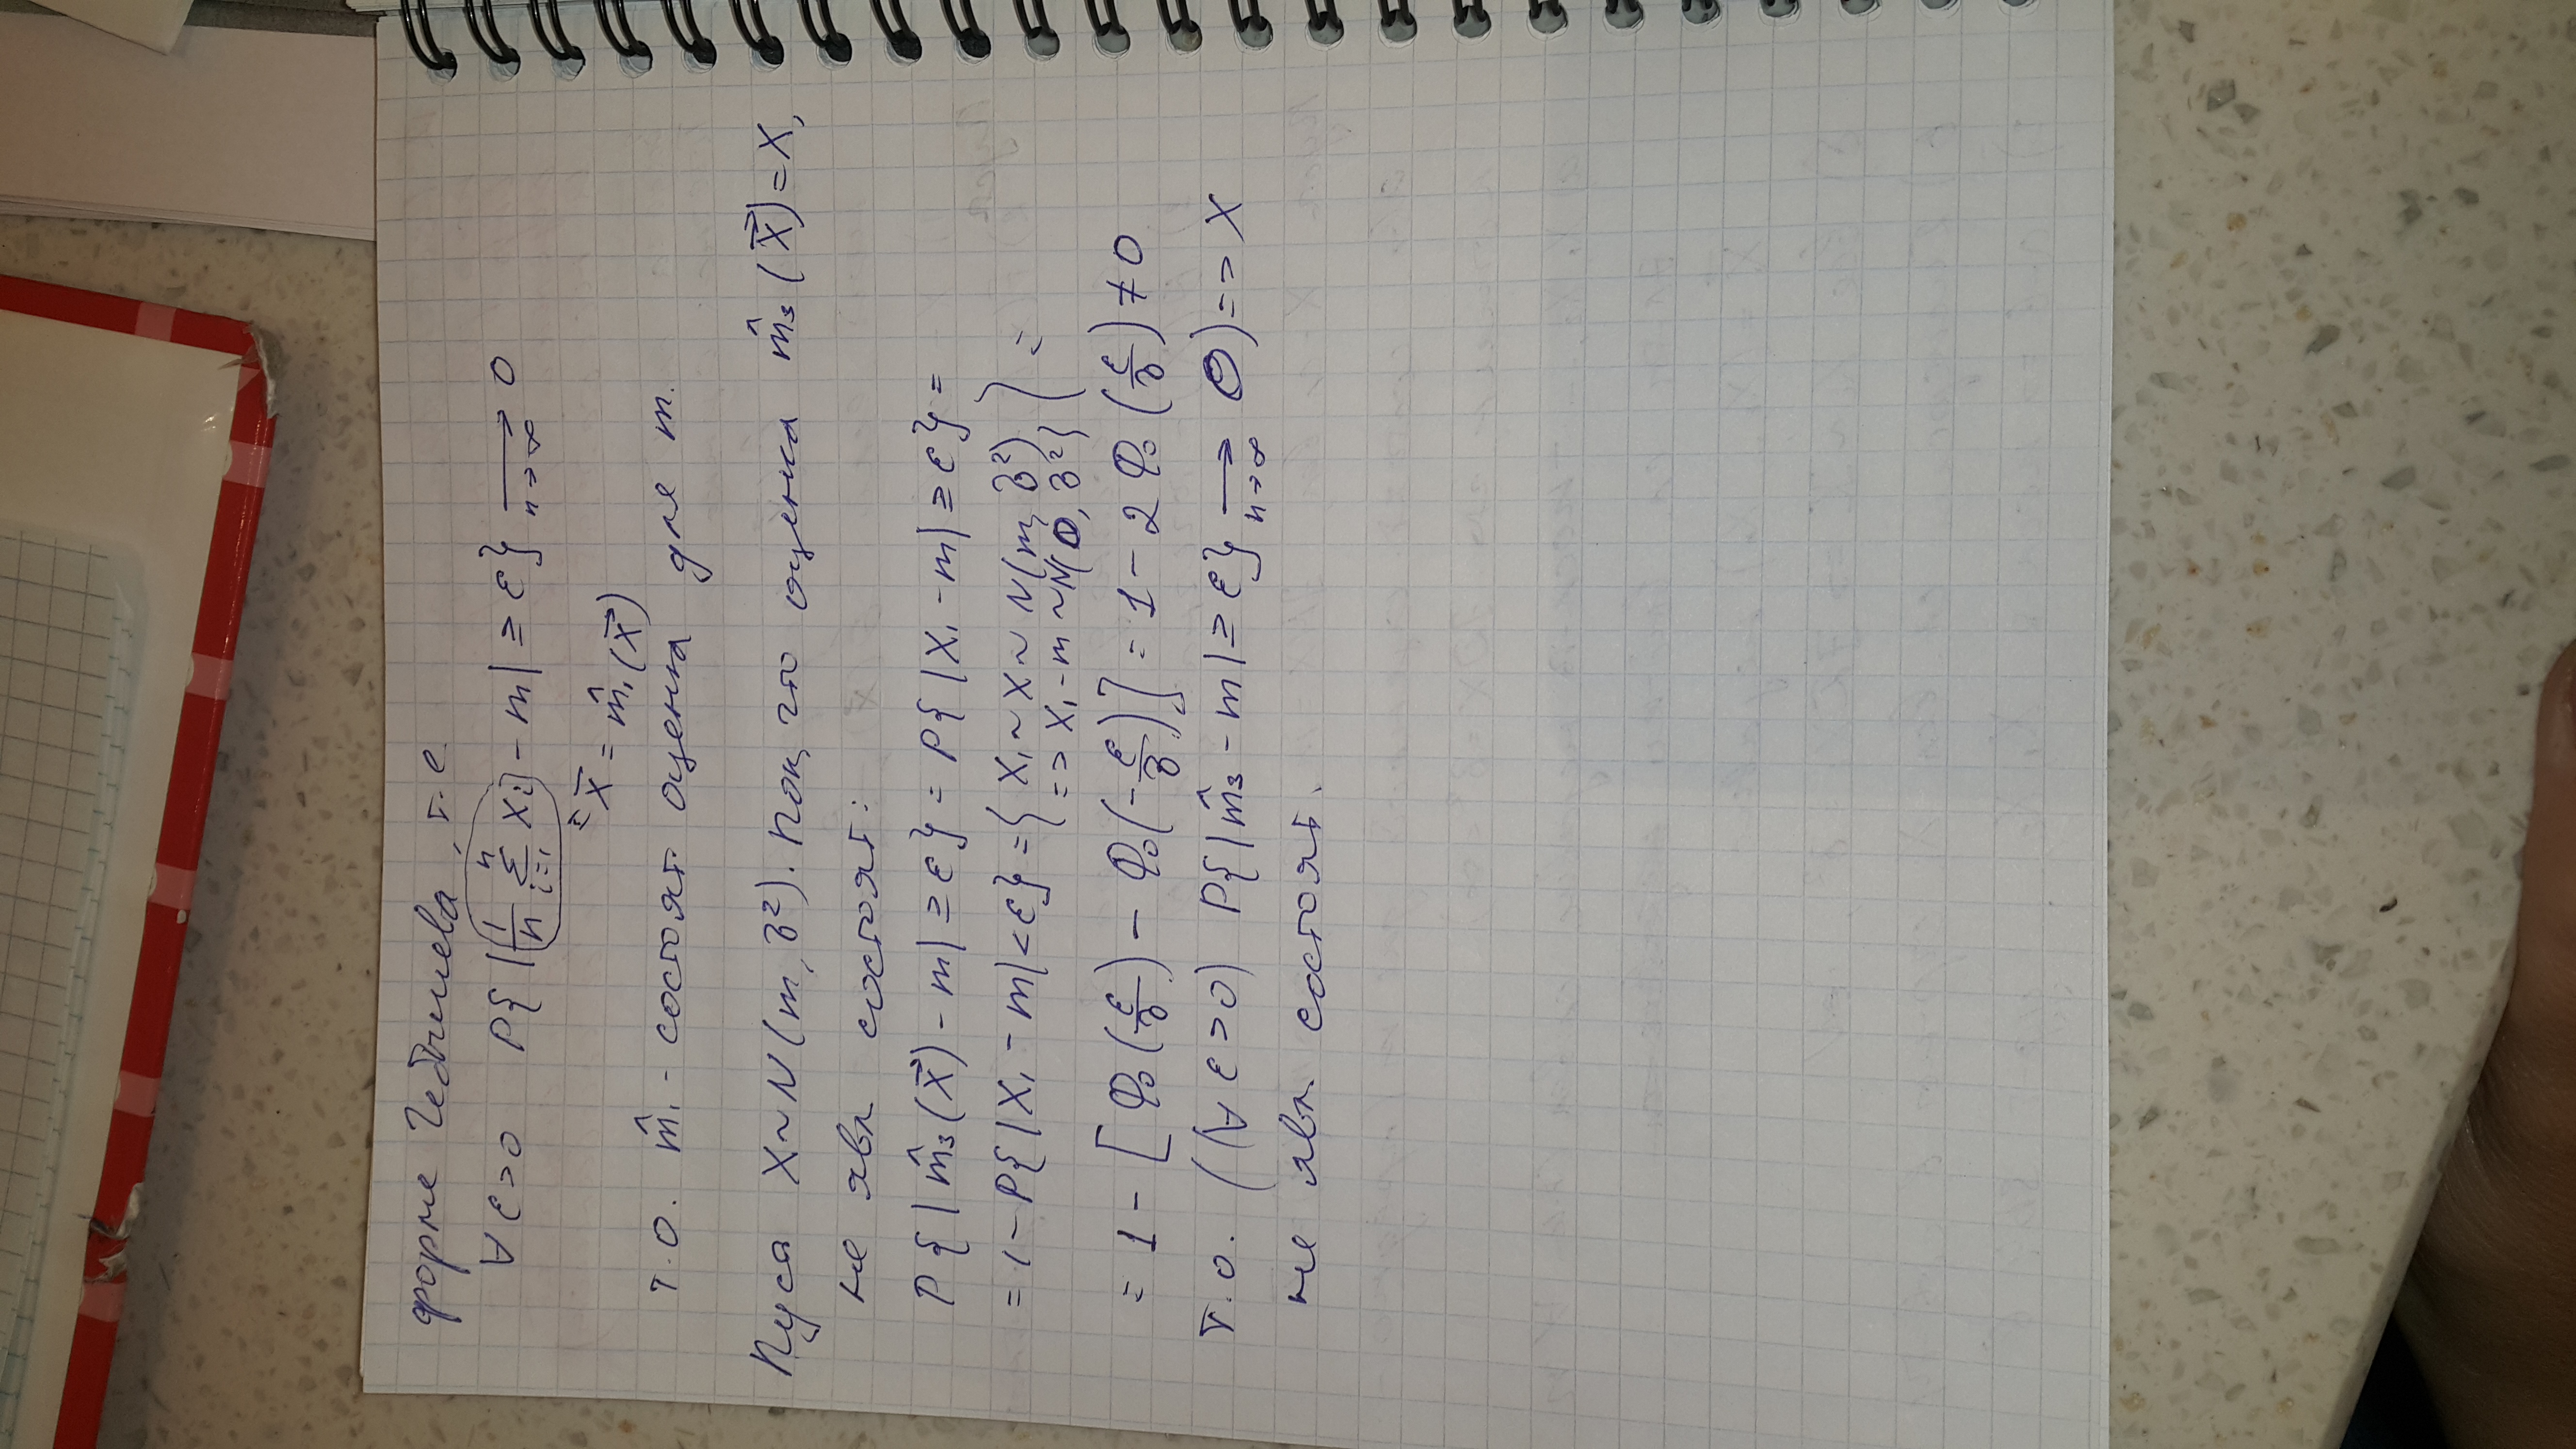 форме Чебышева, т.е.
∀ ε>0 P{|1/n Σ_{i=1}^{n} Xi - m| ≥ ε} ⟶_{n→∞} 0
= X̄ = m̂₁(X⃗)
т.о. m̂₁ - состоят. оценка для m.
Пусть X~N(m, σ²). Пок, что оценка m̂₃(X⃗)=X₁
не явл состоят:
P{|m̂₃(X⃗) - m| ≥ ε} = P{|X₁ - m| ≥ ε} =
= 1 - P{|X₁ - m| < ε} = { X₁ ~ X ~ N(m, σ²),
=> X₁ - m ~ N(0, σ²) } =
= 1 - [Φ₀(ε/σ) - Φ₀(-ε/σ)] = 1 - 2Φ₀(ε/σ) ≠ 0
т.о. ((∀ ε>0) P{|m̂₃ - m| ≥ ε} ⟶_{n→∞} 0) => X
не явл. состоят.